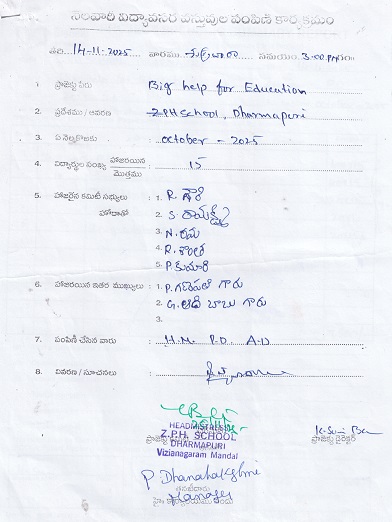 నెలవారీ విద్యావసర వస్తువుల పంపిణీ కార్యక్రమం
తేది 14-11-2025 వారము శుక్రవారం సమయం 3:00 PM
1. ప్రాజెక్టు పేరు : Big help for Education
2. ప్రదేశము / ఆవరణ : ZPH School, Dharmapuri
3. ఏ నెల కొరకు : October - 2025
4. విద్యార్థుల సంఖ్య హాజరయిన : 15
మొత్తము
5. హాజరైన కమిటీ సభ్యులు : 1. R. గౌరి
హోదాతో 2. S.
3. N. రమ
4. R. కాంత
5. P. కుమారి
6. హాజరయిన ఇతర ముఖ్యులు : 1. P. గణపతి గారు
2. G. ఆది బాబు గారు
3.
7. పంపిణీ చేసిన వారు : H.M. P.D. A.D
8. వివరణ / సూచనలు :
HEADMISTRESS
Z.P.H. SCHOOL
DHARMAPURI
Vizianagaram Mandal
ప్రాజెక్టు డైరెక్టర్
P Dhanalakshmi
Manager